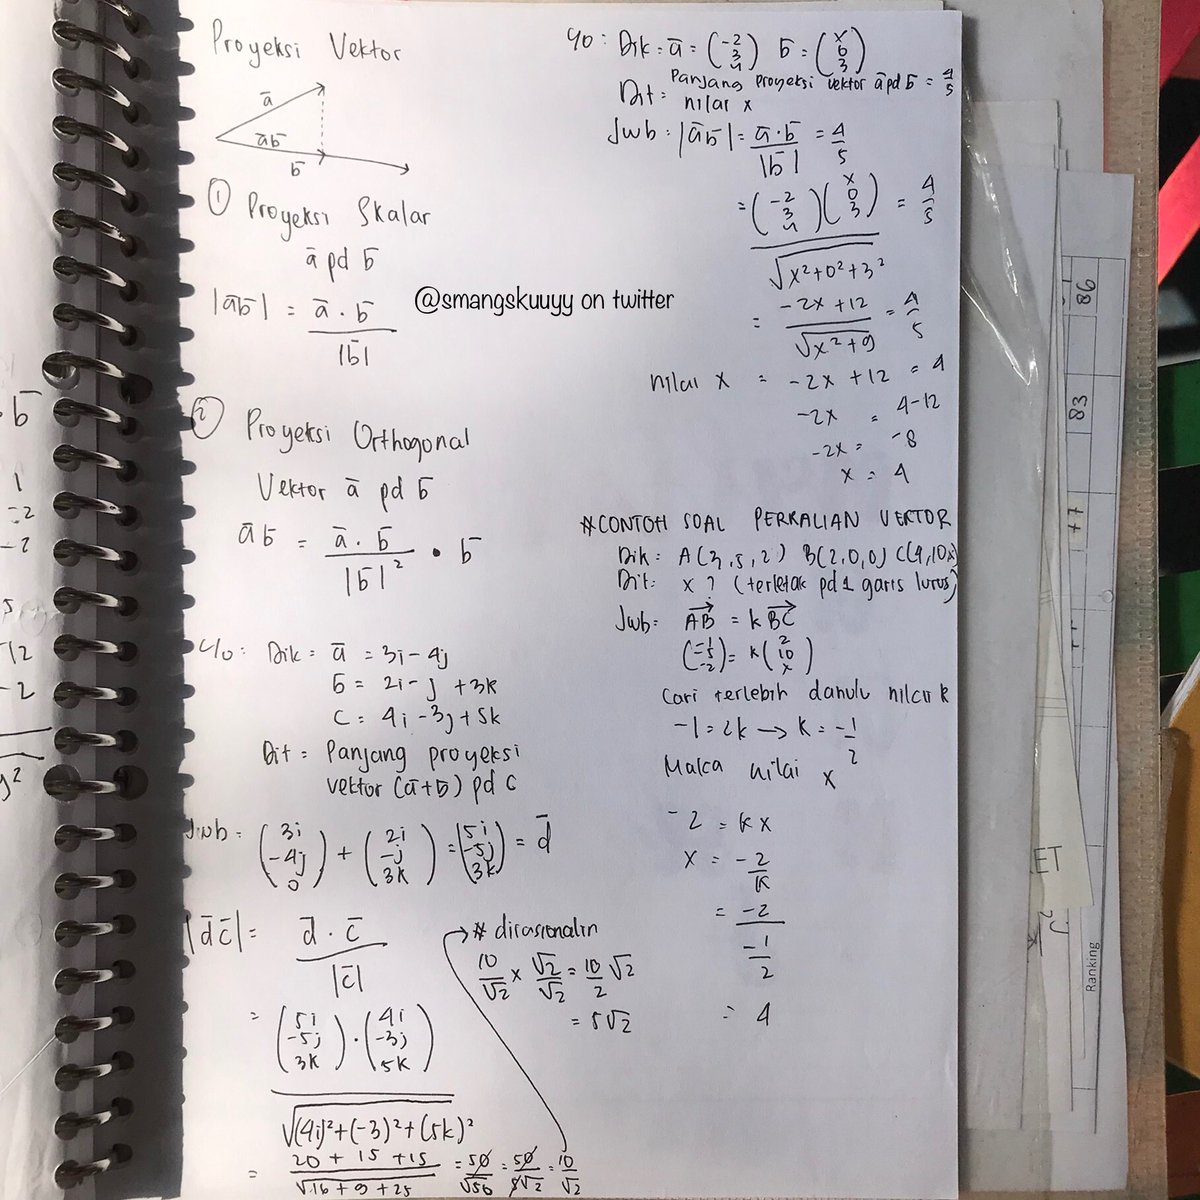 Proyeksi Vektor
ā
āb̄
b̄
① Proyeksi Skalar
ā pd b̄
|āb̄| = ā · b̄
|b̄|
@smangskuuyy on twitter
② Proyeksi Orthogonal
Vektor ā pd b̄
āb̄ = ā · b̄ • b̄
|b̄|²
Dik = ā = 3i - 4j
b̄ = 2i - j + 3k
C = 4i - 3j + 5k
Dit = Panjang proyeksi
vektor (ā+b̄) pd C
Jwb = (3i -4j 0) + (2i -j 3k) = (5i -5j 3k) = d̄
|d̄c̄| = d̄ · c̄
|c̄|
= (5i -5j 3k) · (4i -3j 5k)
√(4i)²+(-3)²+(5k)²
= 20 + 15 + 15 = 50 = 50 = 10
√16 + 9 + 25 √50 5√2 √2
# dirasionalin
10 × √2 = 10 √2
√2 √2 2
= 5√2
Dik = ā = (-2 3 4) b̄ = (x 0 3)
Panjang proyeksi vektor ā pd b̄ = 4/5
Dit = nilai x
Jwb : |āb̄| = ā · b̄ = 4
|b̄| 5
= (-2 3 4)(x 0 3) = 4/5
√x²+0²+3²
= -2x + 12 = 4
√x²+9 5
nilai x = -2x + 12 = 4
-2x = 4-12
-2x = -8
x = 4
#CONTOH SOAL PERKALIAN VEKTOR
Dik : A(3,5,2) B(2,0,0) C(4,10x)
Dit: x ? (terletak pd 1 garis lurus)
Jwb: AB = k BC
(-1 -5 -2) = k (2 10 x)
Cari terlebih dahulu nilai k
-1 = 2k → k = -1
2
Maka nilai x
-2 = kx
x = -2
k
= -2
-1
2
= 4
86
83
77
ET
Ranking